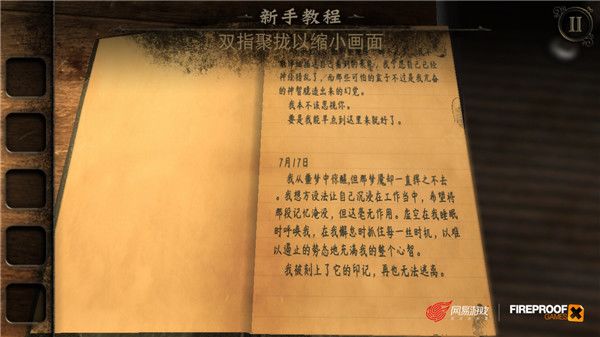 新手教程
双指聚拢以缩小画面
神经错乱了，而那些可怕的影子不过是我亢奋
的神智臆造出来的幻觉。
我本不该忽视你。
要是我能早点到这里来就好了。
7月17日
我从噩梦中惊醒，但那梦魇却一直挥之不去
。我想方设法让自己沉浸在工作当中，希望将
那段记忆淹没，但这毫无作用。虚空在我睡眠
时呼唤我，在我懈怠时抓住每一丝时机，以难
以遏止的势态地充满我的整个心智。
我被刻上了它的印记，再也无法逃离。
网易游戏
FIREPROOF
GAMES